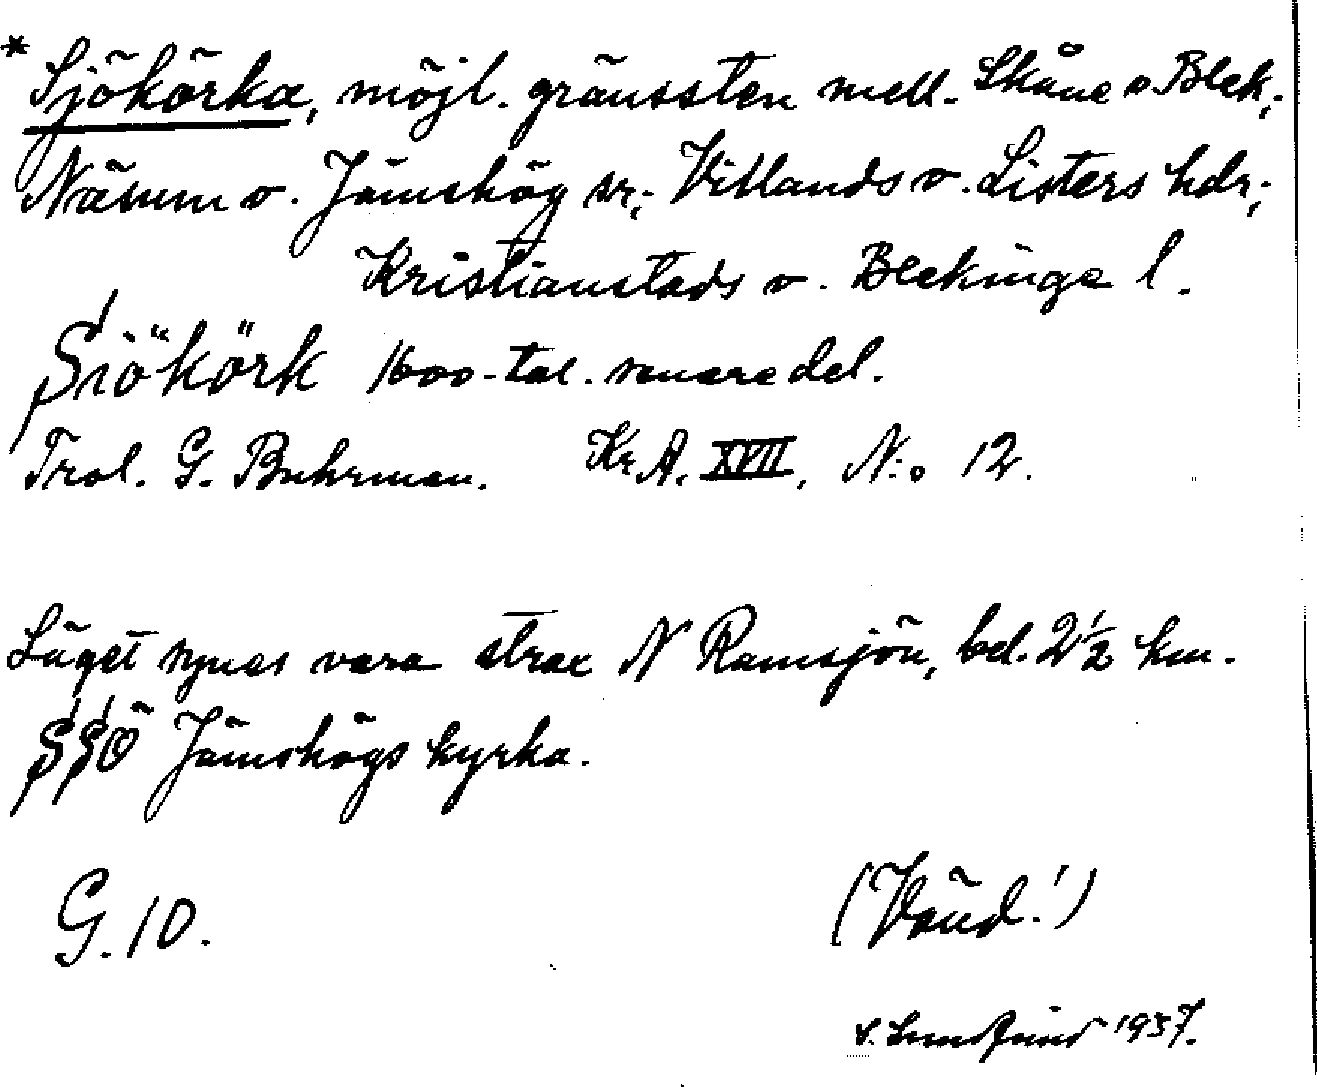 * Sjökörka, möjl. gränssten mell. Skåne o. Blek.;
Näsum o. Jämshög sr.; Villands o. Listers hdr.;
Kristianstads o. Blekinge l.
Siökörk 1600-tal. senare del.
Trol. G. Buhrman. Kr. A. XVII, N:o 12.
Läget synes vara strax N Ramsjön, bd. 2½ km.
SSÖ Jämshögs kyrka.
G. 10.
(Vänd!)
1937.